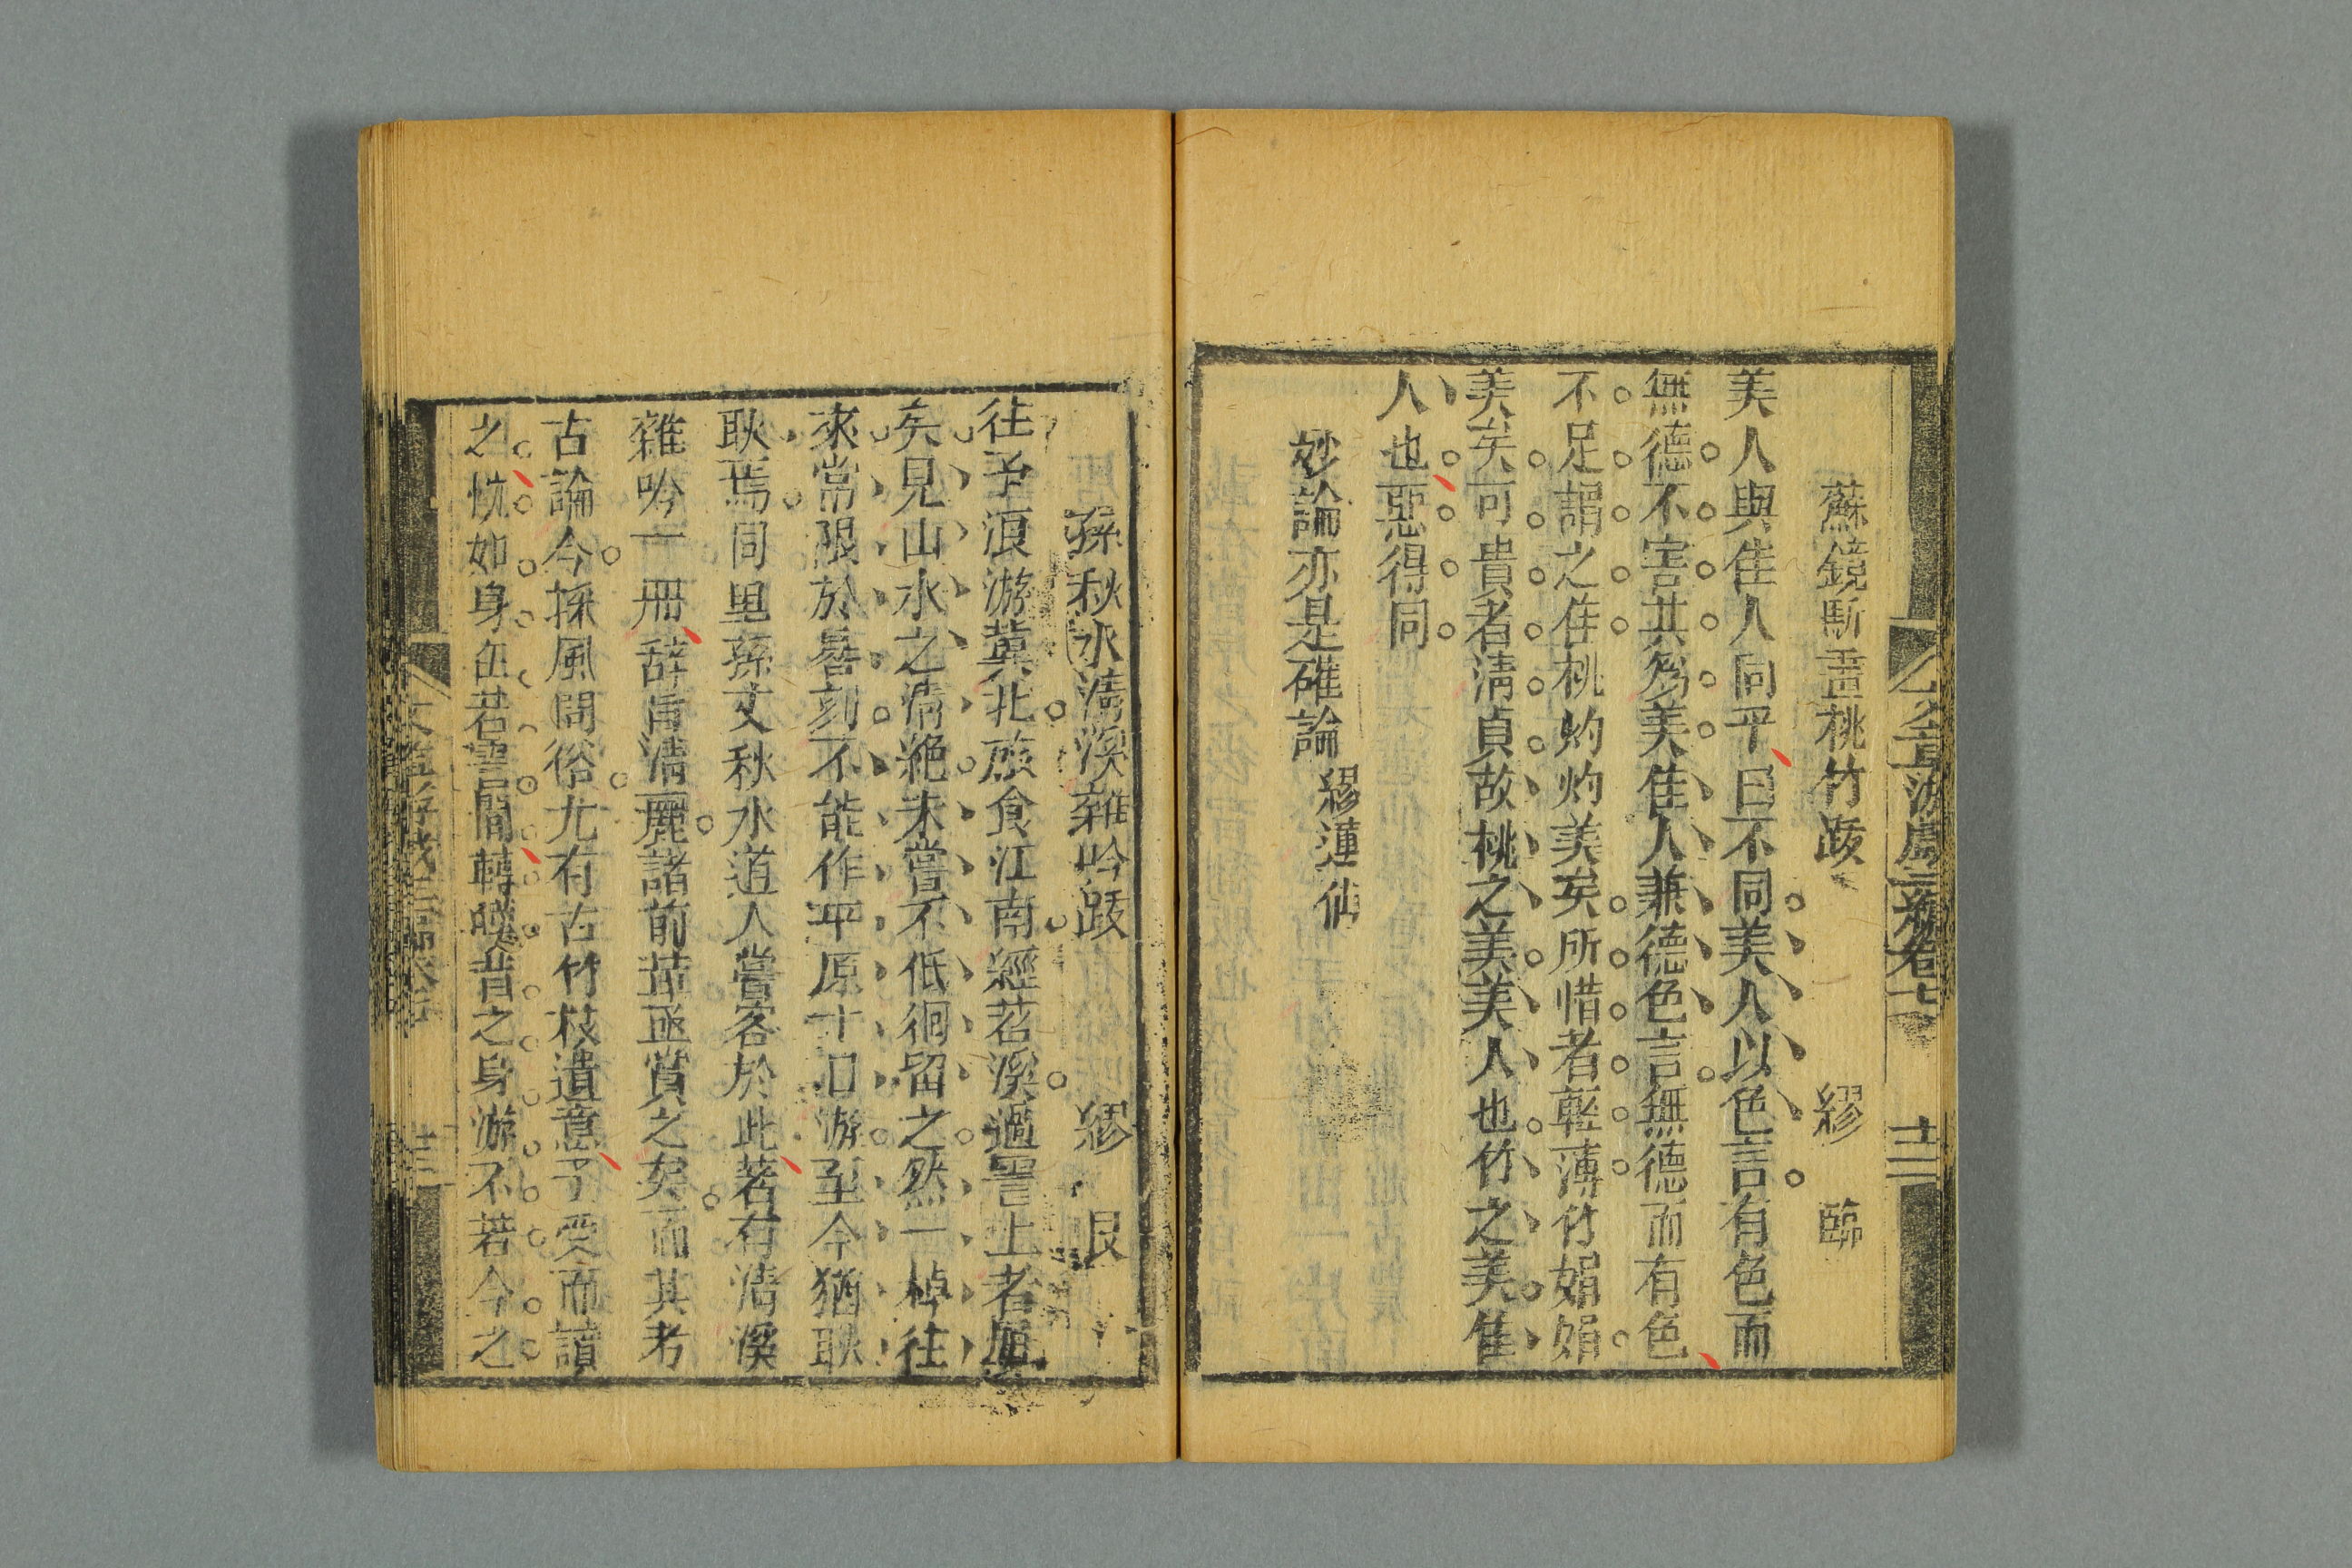 文章游戲三編卷七
十二
蘇鏡斯畫桃竹跋 繆臨
美人與佳人同乎曰不同美人以色言有色而
無德不害其為美佳人兼德色言無德而有色
不足謂之佳桃灼灼美矣所惜者輕薄竹娟娟
美矣可貴者清貞故桃之美美人也竹之美佳
人也惡得同
妙論亦是確論 繆蓮仙
孫秋水清溪雜吟跋 繆艮
往予浪游冀北旅食江南經苕溪過霅上者屢
矣見山水之清絶未嘗不低徊留之然一棹往
來常限於晷刻不能作平原十日游至今猶耿
耿焉同里孫丈秋水道人嘗客於此著有清溪
雜吟一冊辭旨清麗諸前輩亟賞之矣而其考
古論今採風問俗尤有古竹枝遺意予受而讀
之恍如身在苕霅間轉嘆昔之身游不若今之